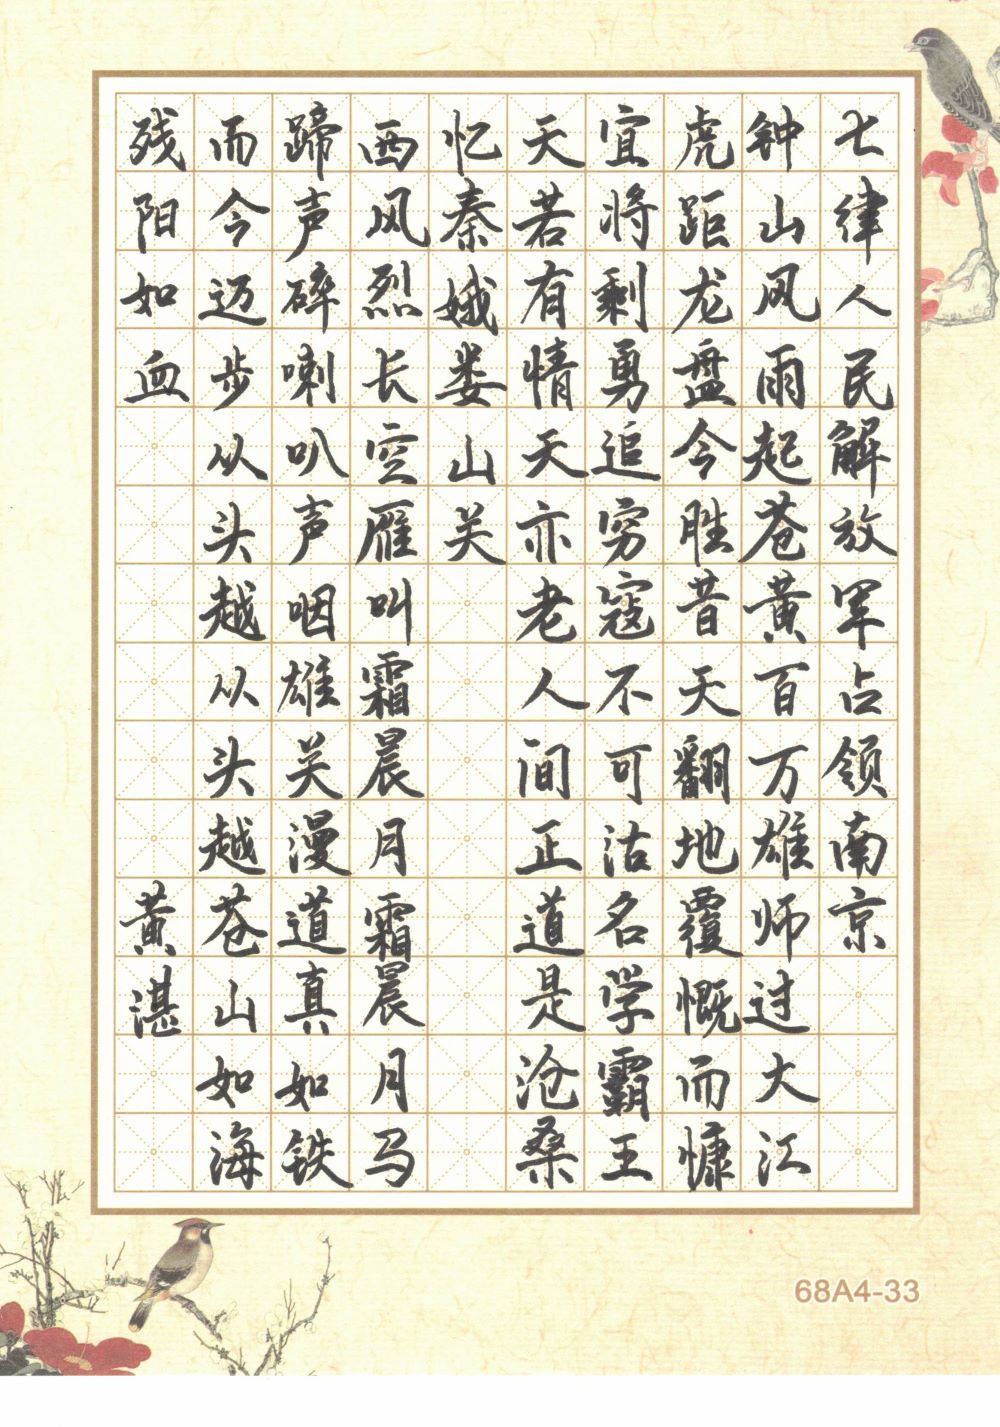 七律人民解放军占领南京
钟山风雨起苍黄百万雄师过大江
虎距龙盘今胜昔天翻地覆慨而慷
宜将剩勇追穷寇不可沽名学霸王
天若有情天亦老人间正道是沧桑
忆秦娥娄山关
西风烈长空雁叫霜晨月霜晨月马
蹄声碎喇叭声咽雄关漫道真如铁
而今迈步从头越从头越苍山如海
残阳如血 黄湛
68A4-33